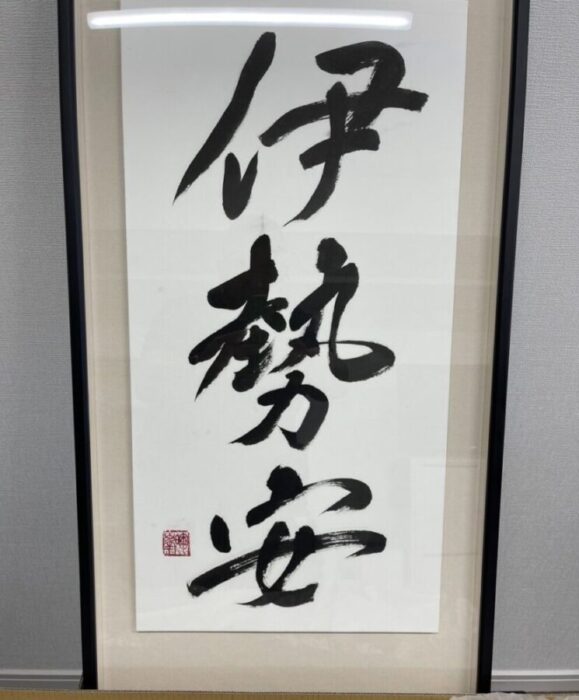 伊勢安